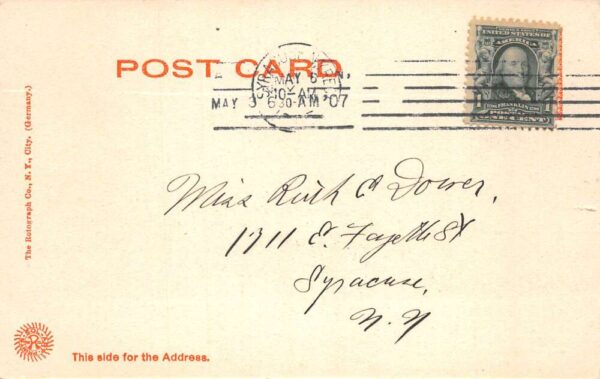 POST CARD
MAY 6
10 AM
MAY 3 6 30-AM '07
UNITED STATES OF
AMERICA
FRANKLIN
POSTAGE
ONE CENT
Miss Ruth C Dower,
1711 E. Fayette St
Syracuse,
N. Y
The Rotograph Co., N. Y., City. (Germany.)
This side for the Address.